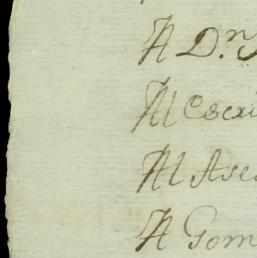 A D.ⁿ
Al Escri
Al Ase
A Gom